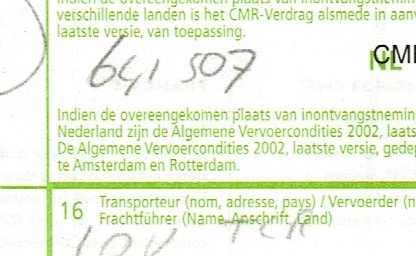 Indien de overeengekomen plaats van inontvangstnemin
verschillende landen is het CMR-Verdrag alsmede in aanv
laatste versie, van toepassing.
641 507
NL CM
Indien de overeengekomen plaats van inontvangstnemin
Nederland zijn de Algemene Vervoercondities 2002, laats
De Algemene Vervoercondities 2002, laatste versie, gedep
te Amsterdam en Rotterdam.
16 Transporteur (nom, adresse, pays) / Vervoerder (n
Frachtführer (Name, Anschrift, Land)